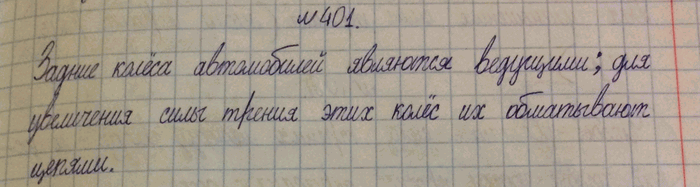 №401.
Задние колёса автомобилей являются ведущими; для
увеличения силы трения этих колёс их обматывают
цепями.